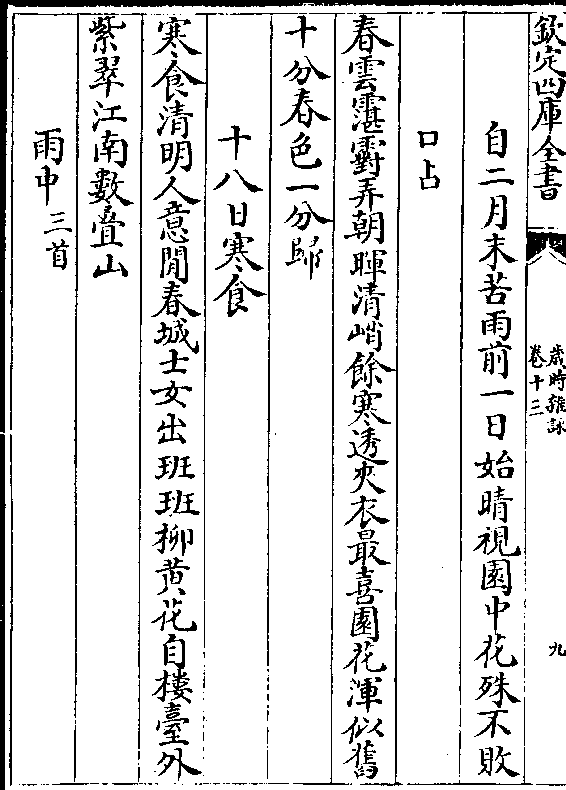 欽定四庫全書
歲時雜詠
卷十三
九
自二月末苦雨前一日始晴視園中花殊不敗
口占
春雲䨴䨴弄朝暉清峭餘寒透夾衣最喜園花渾似舊
十分春色一分歸
十八日寒食
寒食清明人意閒春城士女出班班柳黄花自樓臺外
紫翠江南數疊山
雨中三首